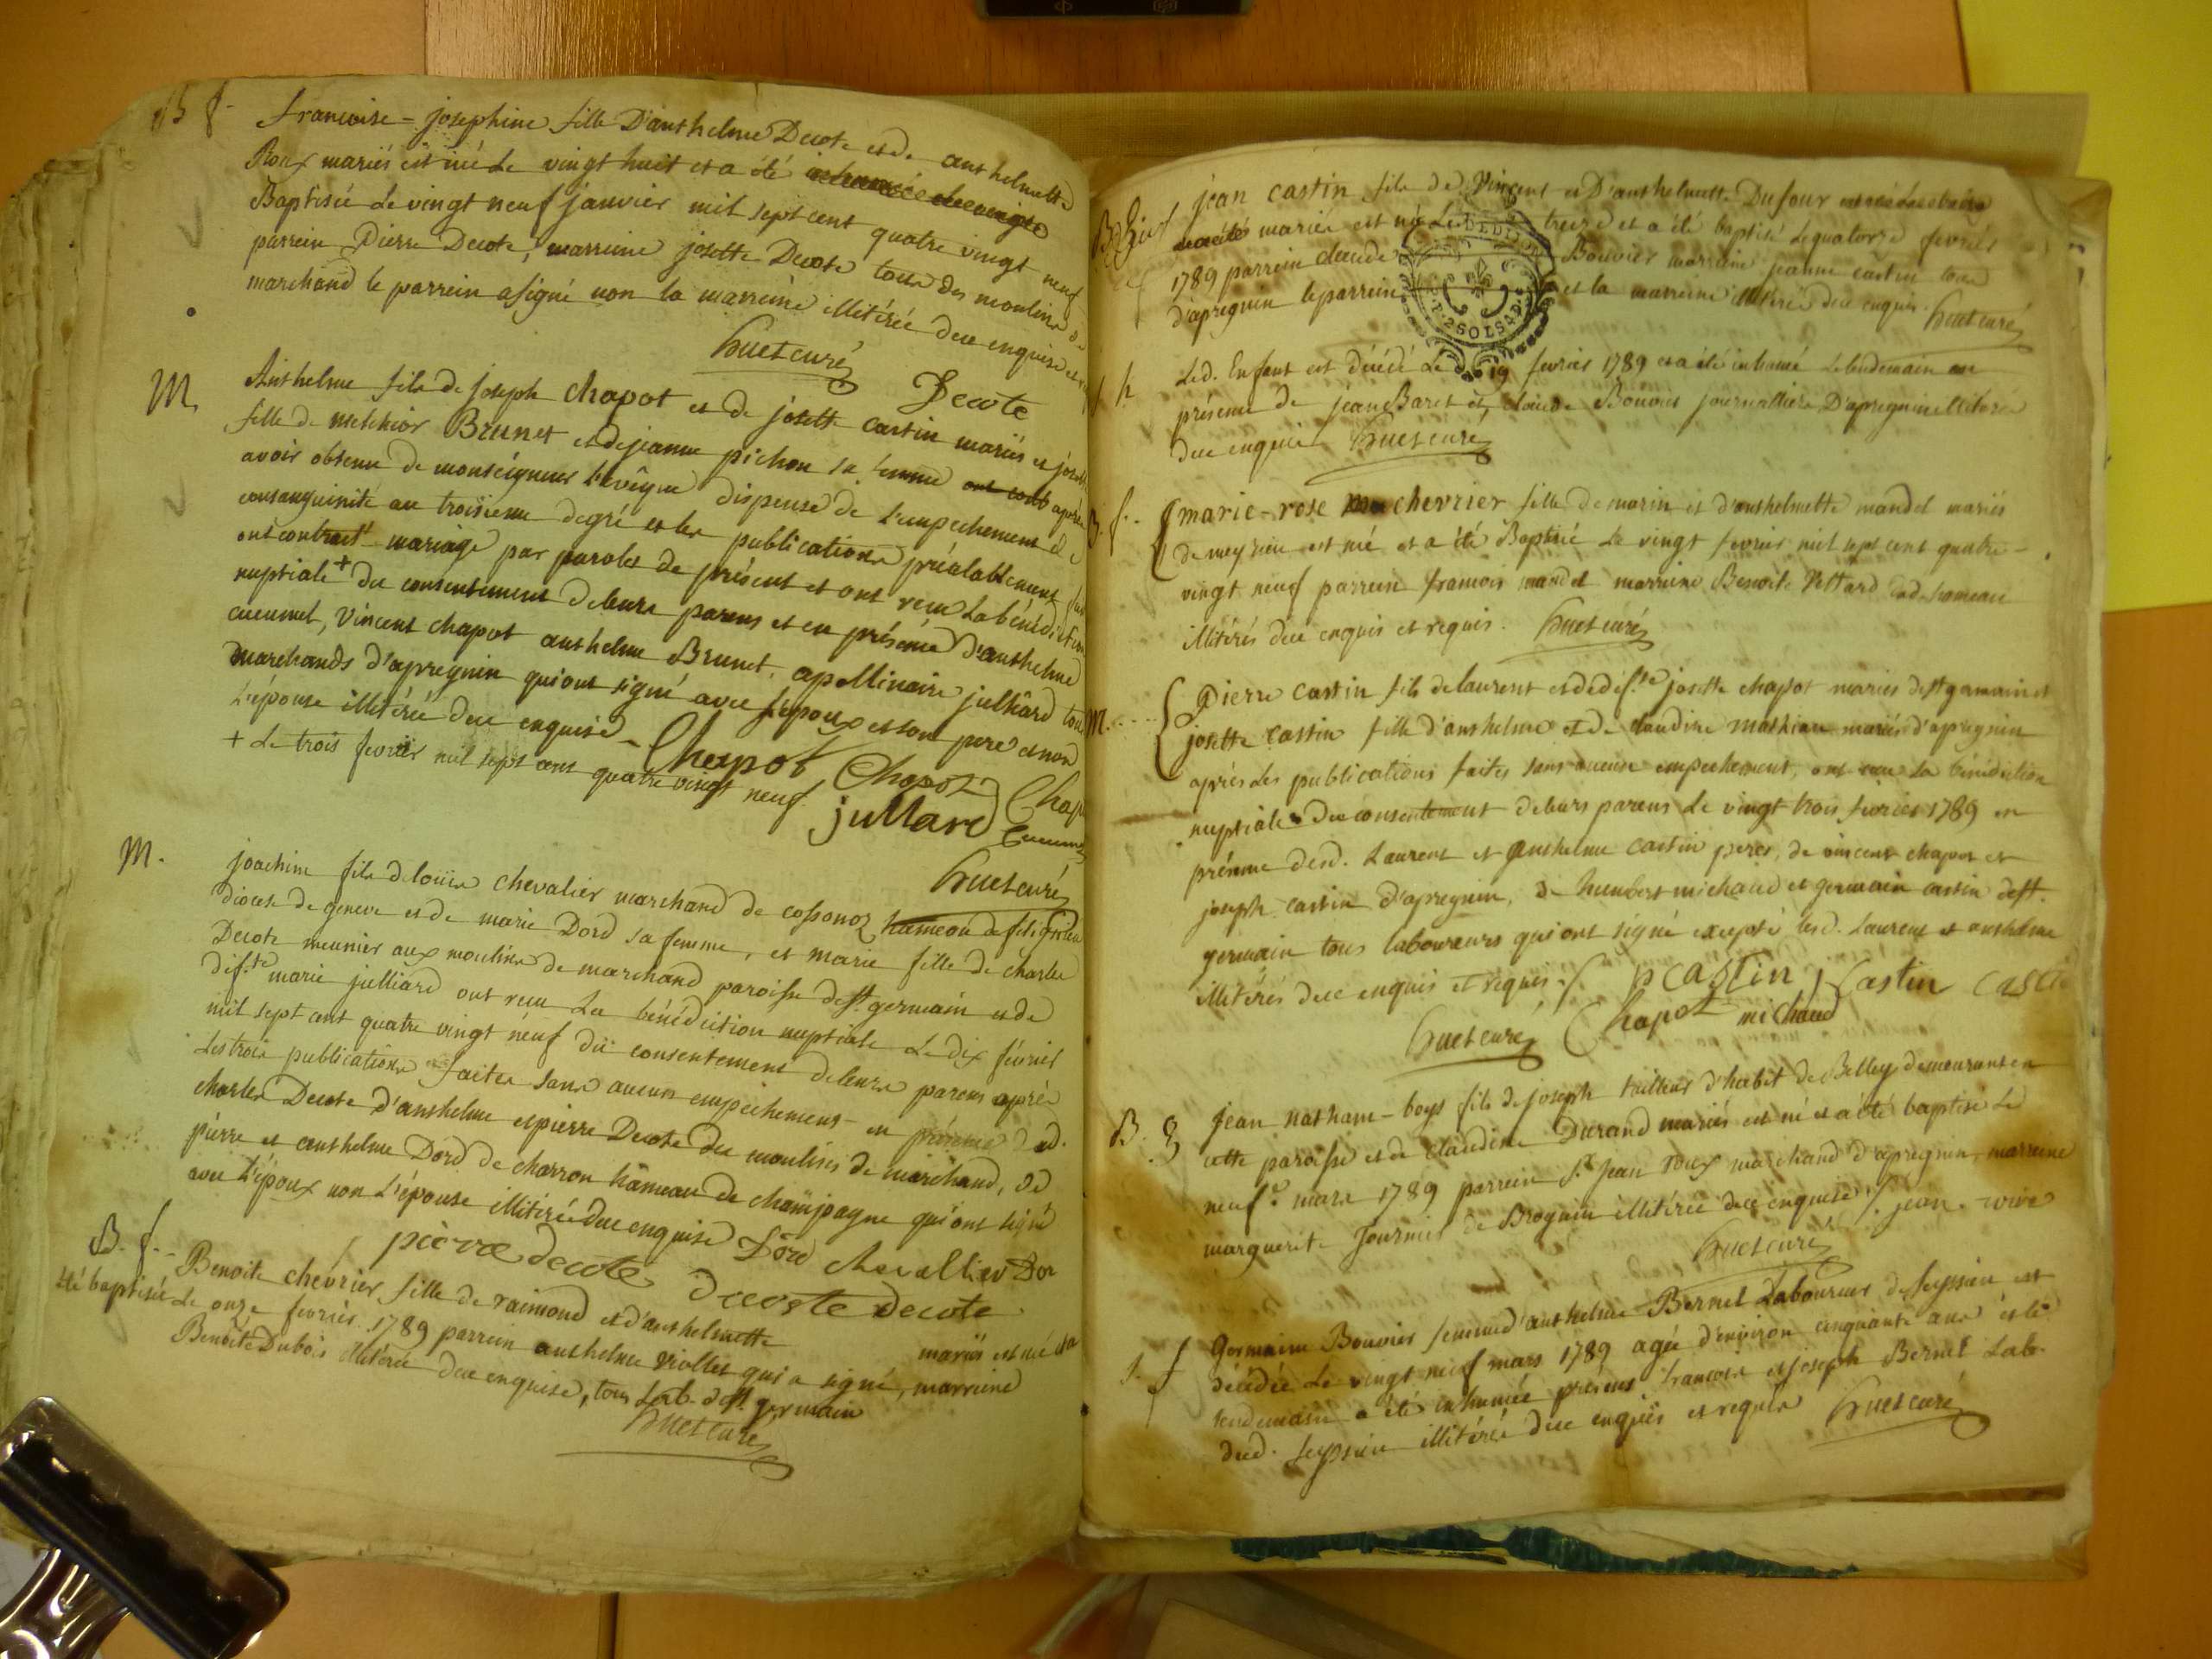 B f. françoise-josephine fille D'anthelme Decote et de anthelmette
Roux mariés est née Le vingt huit et a été
Baptisée Le vingt neuf janvier mil sept cent quatre vingt neuf
parrein Pierre Decote, marreine josette Decote tous des moulins de
marchand le parrein a signé non la marreine illitérée de ce enquise
huet curé
Decote
M. Anthelme fils de joseph chapot et de josette castin mariés et josette
fille de melchior Brunet et de jeanne pichon sa femme après
avoir obtenu de monseigneur L'evêque dispense de L'empechement de
consanguinité au troisieme degré et les publications préalablement
ont contract mariage par paroles de présent et ont reçu La bénédiction
nuptiale + du consentement de leurs parens et en présence d'anthelme
cucumel, Vincent chapot anthelme Brunet, apollinaire julliard tous
marchands d'apregnin qui ont signé avec L'epoux et son pere et non
L'épouse illitérée de ce enquise
+ Le trois fevrier mil sept cent quatre vingt neuf.
Chapot Chapot Chap
jullard
huet curé
M. joachim fils de loüis chevalier marchand de cossonoz hameau de
diocese de geneve et de marie Dord sa femme, et marie fille de charles
Decote meunier aux moulins de marchand paroisse de st. germain et de
def.te marie julliard ont reçu La bénédiction nuptiale Le dix février
mil sept cent quatre vingt neuf du consentement de leurs parens après
Les trois publications faites sans aucun empechement en présence dud.
charles Decote d'anthelme et pierre Decote des moulins de marchand, de
pierre et anthelme Dord de charron hâmeau de champagne qui ont signé
avec L'époux non L'épouse illitérée de ce enquise Dord chevallier Dor
pierre decote decoste decote
B. f. Benoite chevrier fille de raimond et d'anthelmette mariés est née et a
été baptisée Le onze fevrier 1789 parrein anthelme violles qui a signé, marreine
Benoite Dubois illitérée de ce enquise, tous Lab. de st. germain
huet curé
jean castin fils de Vincent et D'anthelmette Dufour
mariés est né Le treize et a été baptisé Le quatorze fevrier
1789 parrein claude Bouvier marreine jeanne castin tous
d'apregnin le parrein et la marreine illitérés de ce enquis. huet curé
Led. Enfant est décédé Le 19 fevrier 1789 et a été inhumé Le lendemain en
présence de jean Baret et claude Bouvier journalliers D'apregnin illitérés
de ce enquis huet curé
B. f. marie-rose chevrier fille de marin et d'anthelmette mandet mariés
de meyrieu est née et a été Baptisée Le vingt fevrier mil sept cent quatre-
vingt neuf parrein francois mandet marreine Benoite Vettard dud. hameau
illitérés de ce enquis et requis. huet curé
M. Pierre castin fils de laurent et de déf.te josette chapot mariés de st germain et
josette castin fille d'anthelme et de claudine mathieu mariés d'apregnin
après Les publications faites sans aucun empechement, ont reçu La bénédiction
nuptiale du consentement de leurs parens Le vingt trois fevrier 1789 en
présence desd. Laurent et anthelme castin peres, de vincent chapot et
joseph castin d'apregnin, de humbert michaud et germain castin de st.
germain tous laboureurs qui ont signé excepté lesd. Laurent et anthelme
illitérés de ce enquis et requis ./. p castin j castin casti
huet curé Chapot michaud
B. g jean nathane-boys fils de joseph tailleur d'habit de Belley demeurant en
cette paroisse et de claudine Durand mariés est né et a été baptisé Le
neuf mars 1789 parrein s.r jean roux marchand d'apregnin, marreine
marguerite fournier de Brognin illitérée de ce enquise ./. jean. roux
huet curé
s. f Germaine Bouvier femme d'anthelme Bernet Laboureur de seyssieu est
décédée Le vingt neuf mars 1789 agée d'environ cinquante ans et le
lendemain a été inhumée présens francois et joseph Bernet Lab.
dud. seyssieu illitérés de ce enquis et requis huet curé